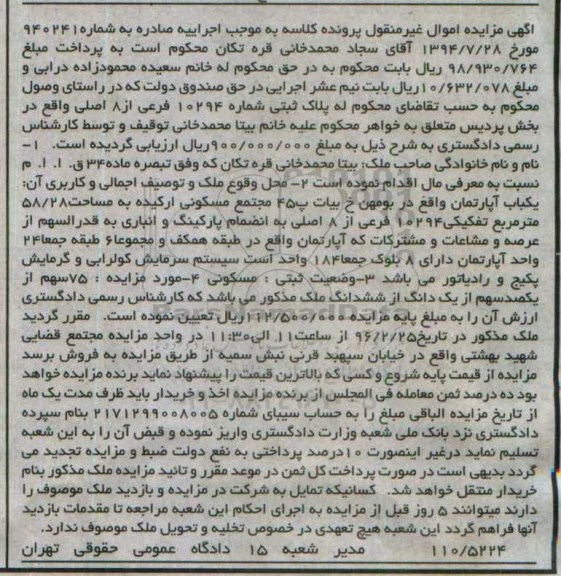 اگهی مزایده اموال غیرمنقول پرونده کلاسه به موجب اجراییه صادره به شماره ۹۴۰۲۴۱
مورخ ۱۳۹۴/۷/۲۸ آقای سجاد محمدخانی قره تکان محکوم است به پرداخت مبلغ
۹۸/۹۳۰/۷۶۴ ریال بابت محکوم به در حق محکوم له خانم سعیده محمودزاده درابی و
مبلغ ۱۰/۶۳۲/۰۷۸ ریال بابت نیم عشر اجرایی در حق صندوق دولت که در راستای وصول
محکوم به حسب تقاضای محکوم له پلاک ثبتی شماره ۱۰۲۹۴ فرعی از۸ اصلی واقع در
بخش پردیس متعلق به خواهر محکوم علیه خانم بیتا محمدخانی توقیف و توسط کارشناس
رسمی دادگستری به شرح ذیل به مبلغ ۹۰۰/۰۰۰/۰۰۰ریال ارزیابی گردیده است. ۱-
نام و نام خانوادگی صاحب ملک: بیتا محمدخانی قره تکان که وفق تبصره ماده۳۴ ق. ا. ا. م
نسبت به معرفی مال اقدام نموده است ۲- محل وقوع ملک و توصیف اجمالی و کاربری آن:
یکباب آپارتمان واقع در بومهن خ بیات پ۴۵ مجتمع مسکونی ارکیده به مساحت۵۸/۲۸
مترمربع تفکیکی۱۰۲۹۴ فرعی از ۸ اصلی به انضمام پارکینگ و انباری به قدرالسهم از
عرصه و مشاعات و مشترکات که آپارتمان واقع در طبقه همکف و مجموعا۶ طبقه جمعا۲۴
واحد آپارتمان دارای ۸ بلوک جمعا۱۸۴ واحد است سیستم سرمایش کولرابی و گرمایش
پکیج و رادیاتور می باشد ۳-وضعیت ثبتی : مسکونی ۴-مورد مزایده : ۷۵سهم از
یکصدسهم از یک دانگ از ششدانگ ملک مذکور می باشد که کارشناس رسمی دادگستری
ارزش آن را به مبلغ پایه مزایده ۱۱۲/۵۰۰/۰۰۰ریال تعیین نموده است. مقرر گردید
ملک مذکور در تاریخ۹۶/۲/۲۵ از ساعت۱۱ الی۱۱:۳۰ در واحد مزایده مجتمع قضایی
شهید بهشتی واقع در خیابان سپهبد قرنی نبش سمیه از طریق مزایده به فروش برسد
مزایده از قیمت پایه شروع و کسی که بالاترین قیمت را پیشنهاد نماید برنده مزایده خواهد
بود ده درصد ثمن معامله فی المجلس از برنده مزایده اخذ و خریدار باید ظرف مدت یک ماه
از تاریخ مزایده الباقی مبلغ را به حساب سیبای شماره ۲۱۷۱۲۹۹۰۰۸۰۰۵ بنام سپرده
دادگستری نزد بانک ملی شعبه وزارت دادگستری واریز نموده و قبض آن را به این شعبه
تسلیم نماید درغیر اینصورت ۱۰درصد پرداختی به نفع دولت ضبط و مزایده تجدید می
گردد بدیهی است در صورت پرداخت کل ثمن در موعد مقرر و تائید مزایده ملک مذکور بنام
خریدار منتقل خواهد شد. کسانیکه تمایل به شرکت در مزایده و بازدید ملک موصوف را
دارند میتوانند ۵ روز قبل از مزایده به اجرای احکام این شعبه مراجعه تا مقدمات بازدید
آنها فراهم گردد این شعبه هیچ تعهدی در خصوص تخلیه و تحویل ملک موصوف ندارد.
۱۱۰/۵۲۲۴ مدیر شعبه ۱۵ دادگاه عمومی حقوقی تهران